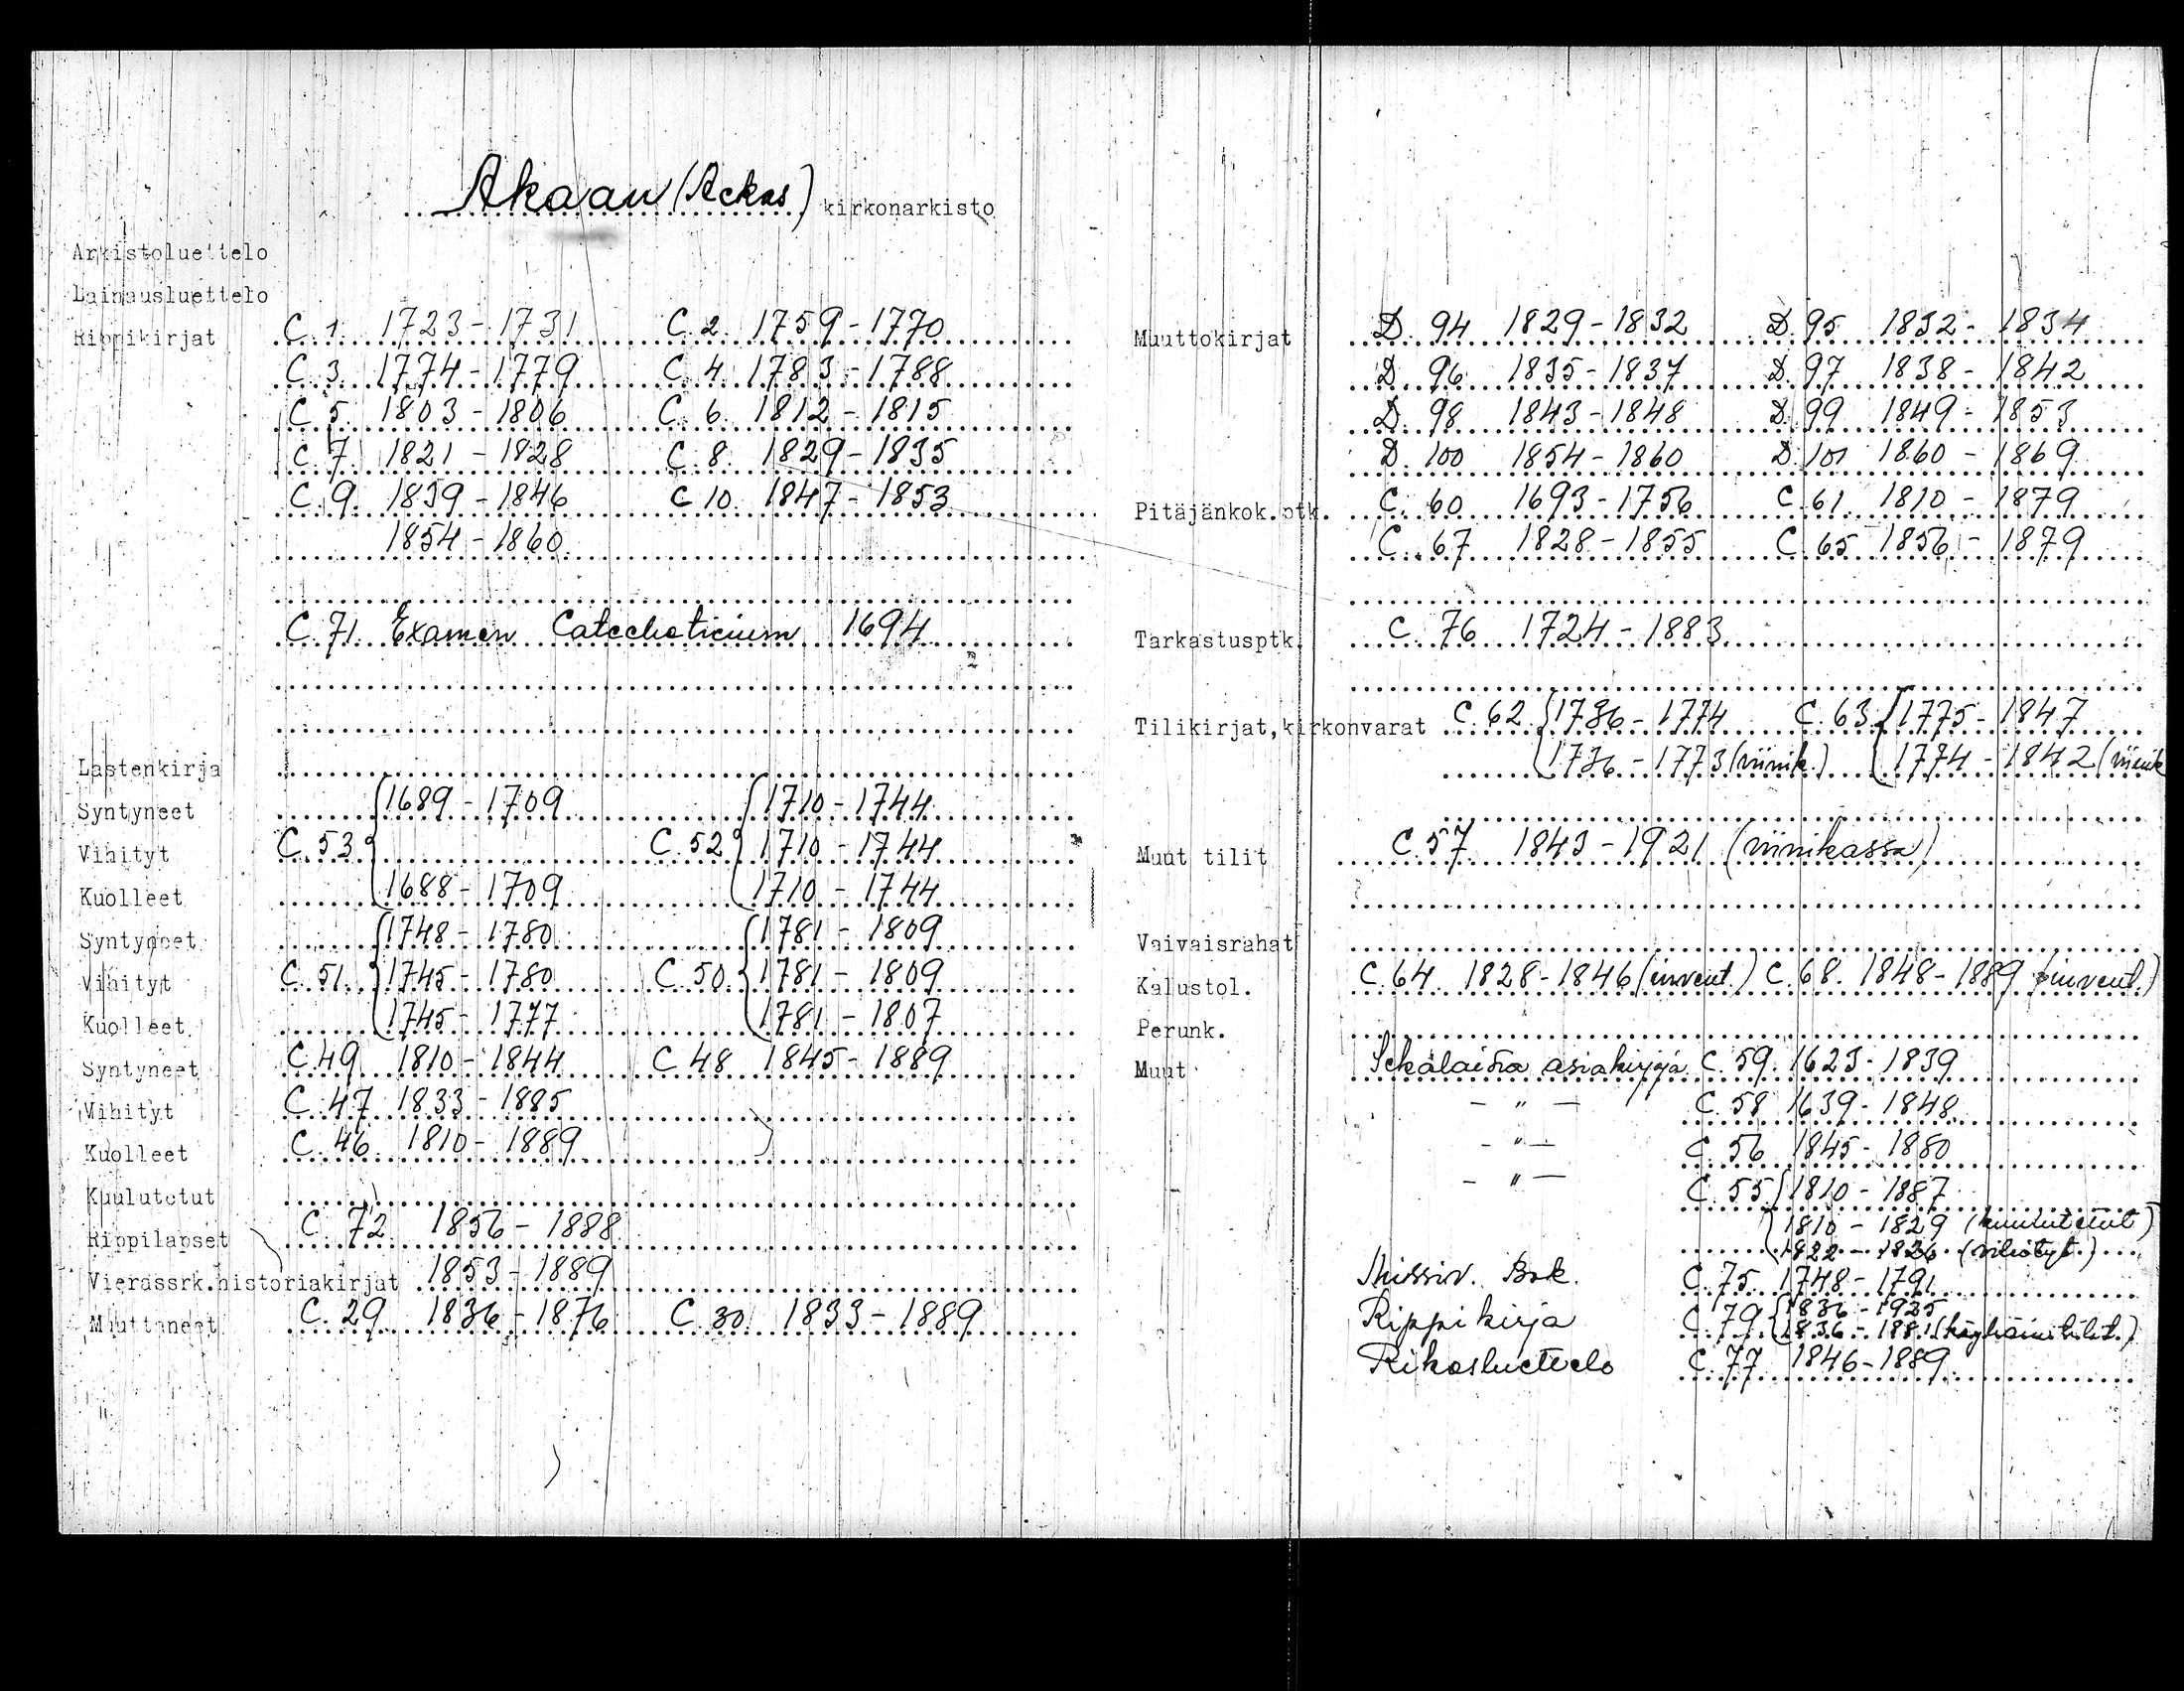 Akaan (Ackas) kirkonarkisto
Arkistoluettelo
Lainausluettelo
Rippikirjat C. 1. 1723-1731 C. 2. 1759-1770
C. 3. 1774-1779 C. 4. 1783-1788
C. 5. 1803-1806 C. 6. 1812-1815
C. 7. 1821-1828 C. 8. 1829-1835
C. 9. 1839-1846 C 10. 1847-1853
1854-1860
C. 71. Examen Catecheticum 1694
Lastenkirja
Syntyneet 1689-1709 1710-1744
Vihityt C. 53 C. 52 1710-1744
Kuolleet 1688-1709 1710-1744
Syntyneet 1748-1780 1781-1809
Vihityt C. 51. 1745-1780 C. 50. 1781-1809
Kuolleet 1745-1777 1781-1807
Syntyneet C. 49 1810-1844 C. 48 1845-1889
Vihityt C. 47 1833-1885
Kuolleet C. 46 1810-1889
Kuulutetut
Rippilapset C. 72 1856-1888
Vierassrk.historiakirjat 1853-1889
Muuttaneet C. 29 1836-1876 C. 30. 1833-1889
Muuttokirjat D. 94 1829-1832 D. 95 1832-1834
D. 96 1835-1837 D. 97 1838-1842
D. 98 1843-1848 D. 99 1849-1853
D. 100 1854-1860 D. 101 1860-1869
Pitäjänkok.ptk. C. 60 1693-1756 C. 61. 1810-1879
C. 67 1828-1855 C. 65 1856-1879
Tarkastusptk. C. 76 1724-1883
Tilikirjat, kirkonvarat C. 62 1736-1774 C. 63. 1775-1847
1736-1773 (viinik.) 1774-1842 (viinik
Muut tilit C. 57 1843-1921 (viinikassa)
Vaivaisrahat
Kalustol. C. 64. 1828-1846 (invent.) C. 68. 1848-1889 (invent.)
Perunk.
Muut Sekalaisia asiakirjoja C. 59. 1623-1839
- " - C. 58 1639-1848
- " - C. 56 1845-1880
- " - C. 55 1810-1887
1810-1829 (kuulutetut)
1822-1826 (vihityt)
Missiv. Bok. C. 75. 1748-1791
Rippikirja C. 79 1836-1925
1836-1881
Rikosluettelo C. 77 1846-1889